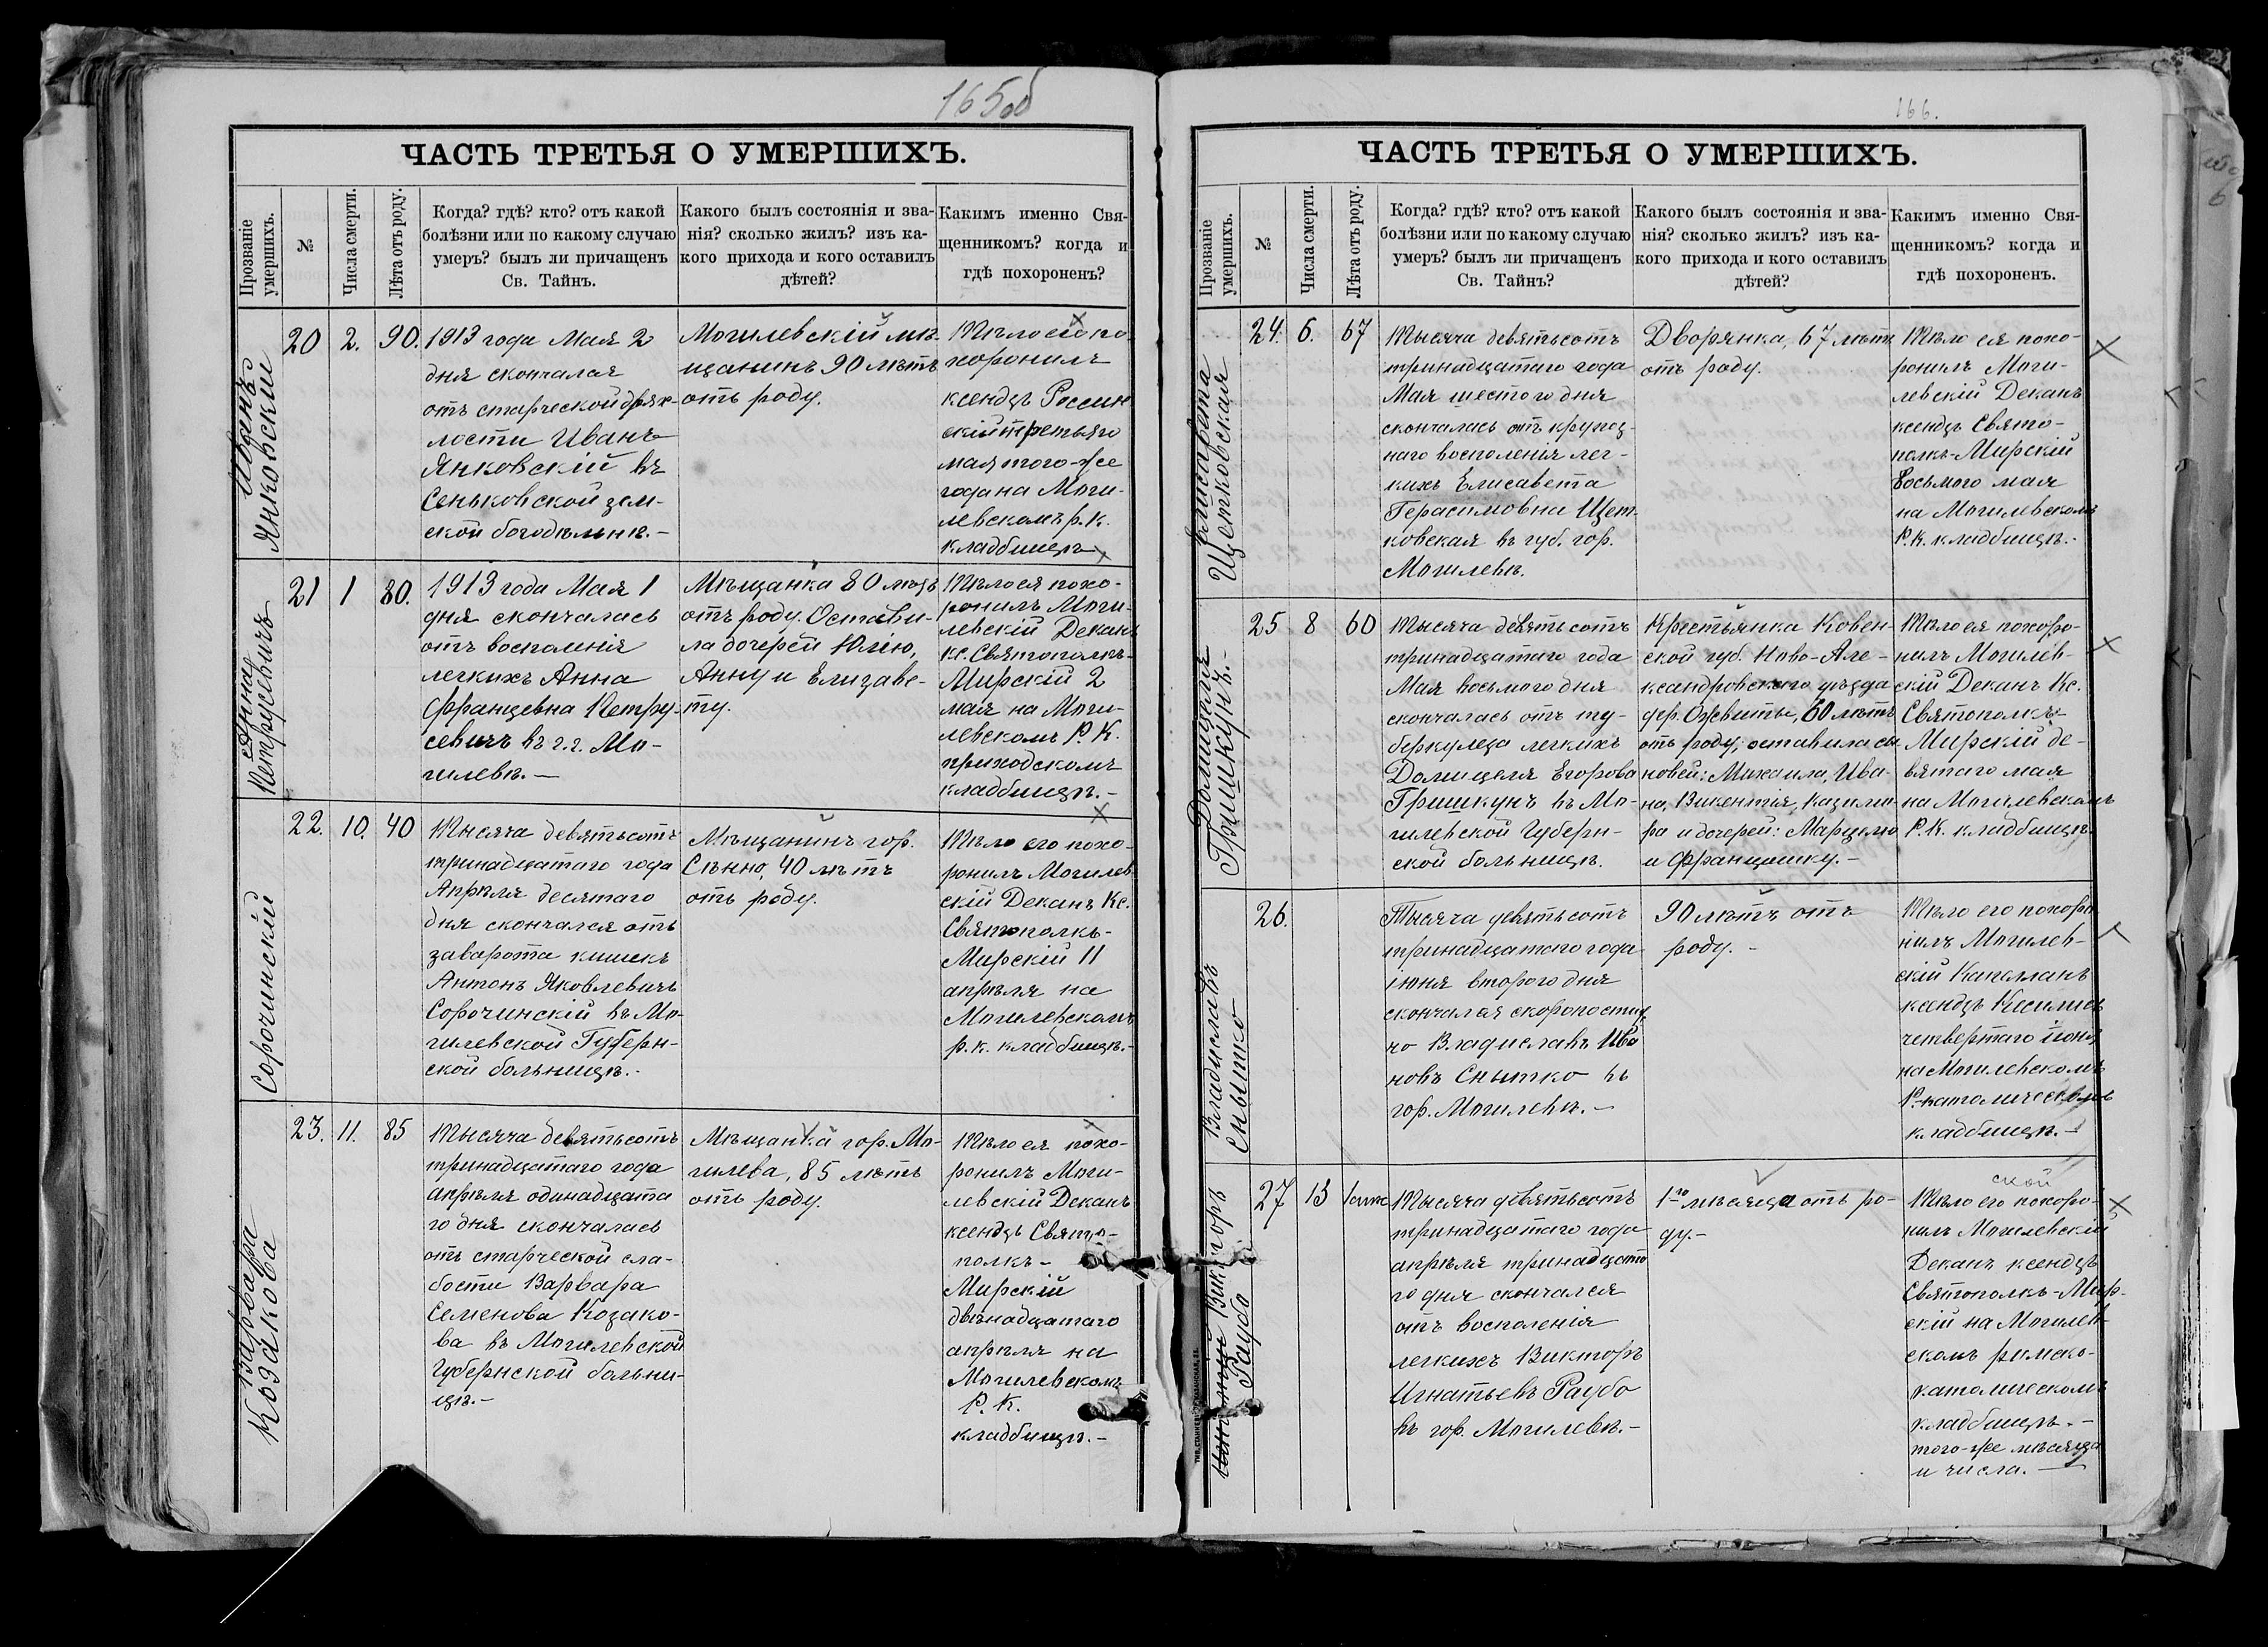 165об
ЧАСТЬ ТРЕТЬЯ О УМЕРШИХЪ.
Прозваніе умершихъ.
№
Числа смерти.
Лѣта отъ роду.
Когда? гдѣ? кто? отъ какой
болѣзни или по какому случаю
умеръ? былъ ли причащенъ
Св. Тайнъ.
Какого былъ состоянія и зва-
нія? сколько жилъ? изъ ка-
кого прихода и кого оставилъ
дѣтей?
Какимъ именно Свя-
щенникомъ? когда и
гдѣ похороненъ?
Иванъ
Янковскій
20
2.
90.
1913 года Мая 2
дня скончался
отъ старческой дрях-
лости Иванъ
Янковскій въ
Сеньковской зем-
ской богодѣльнѣ.-
Могилевскій мѣ-
щанинъ 90 лѣтъ
отъ роду.
Тѣло его по-
хоронилъ
ксендзъ Россин
скій третьяго
мая того-же
года на Моги-
левскомъ р. к.
кладбищѣ
Анна
Петрусевичъ
21
1
80.
1913 года Мая 1
дня скончалась
отъ воспаленія
легкихъ Анна
Францевна Петру-
севичъ въ г.г. Мо-
гилевѣ.-
Мѣщанка 80 лѣтъ
отъ роду. Остави-
ла дочерей Юлію,
Анну и Елизаве-
ту.
Тѣло ея похо-
ронилъ Моги-
левскій Деканъ
Кс. Святополкъ-
Мирскій 2
мая на Моги-
левскомъ Р. К.
приходскомъ
кладбищѣ.-
Сорочинскій
22.
10.
40
Тысяча девятьсотъ
тринадцатаго года
Апрѣля десятаго
дня скончался отъ
заворота кишекъ
Антонъ Яковлевичъ
Сорочинскій въ Мо-
гилевской Губерн-
ской больницѣ.-
Мѣщанинъ гор.
Сѣнно, 40 лѣтъ
отъ роду.
Тѣло его похо-
ронилъ Могилев-
скій Деканъ Кс.
Святополкъ-
Мирскій 11
апрѣля на
Могилевскомъ
р. к. кладбищѣ.-
Варвара
Козакова
23.
11.
85
Тысяча девятьсотъ
тринадцатаго года
апрѣля одинадцата
го дня скончалась
отъ старческой сла-
бости Варвара
Семенова Козако-
ва въ Могилевской
Губернской больни-
цѣ.-
Мѣщанка гор. Мо-
гилева, 85 лѣтъ
отъ роду.
Тѣло ея похо-
ронилъ Моги-
левскій Деканъ
ксендзъ Свято-
полкъ-
Мирскій
двѣнадцатаго
апрѣля на
Могилевскомъ
Р. К.
кладбищѣ.-
166.
ЧАСТЬ ТРЕТЬЯ О УМЕРШИХЪ.
Прозваніе умершихъ.
№
Числа смерти.
Лѣта отъ роду.
Когда? гдѣ? кто? отъ какой
болѣзни или по какому случаю
умеръ? былъ ли причащенъ
Св. Тайнъ?
Какого былъ состоянія и зва-
нія? сколько жилъ? изъ ка-
кого прихода и кого оставилъ
дѣтей?
Какимъ именно Свя-
щенникомъ? когда и
гдѣ похороненъ.
Елисавета
Щетковская
24.
6.
67
Тысяча девятьсотъ
тринадцатаго года
Мая шестого дня
скончалась отъ крупоз-
наго воспаленія лег-
кихъ Елисавета
Герасимовна Щет-
ковская въ губ. гор.
Могилевѣ.
Дворянка, 67 лѣтъ
отъ роду.
Тѣло ея похо-
ронилъ Моги-
левскій Деканъ
ксендзъ Свято-
полкъ-Мирскій
восьмого мая
на Могилевскомъ
Р. К. кладбищѣ.-
Домицеля
Гришкунъ.-
25
8
60
Тысяча девятьсотъ
тринадцатаго года
Мая восьмого дня
скончалась отъ ту-
беркулеза легкихъ
Домицеля Егорова
Гришкунъ въ Мо-
гилевской Губерн-
ской больницѣ.
Крестьянка Ковен-
ской губ. Ново-Але-
ксандровскаго уѣзда
дер. Ожвиты, 60 лѣтъ
отъ роду; оставила сы
новей: Михаила, Ива-
на, Викентія, Казими-
ра и дочерей: Марцелю
и Францишку.-
Тѣло ея похоро-
нилъ Могилев-
скій Деканъ Кс.
Святополкъ-
Мирскій де-
вятаго мая
на Могилевскомъ
Р. К. кладбищѣ.
Владиславъ
Снытко
26.
Тысяча девятьсотъ
тринадцатаго года
іюня второго дня
скончался скоропостиж
но Владиславъ Ива
новъ Снытко въ
гор. Могилевѣ.-
90 лѣтъ отъ
роду.-
Тѣло его похоро
нилъ Могилев-
скій Капеланъ
ксендзъ
четвертаго іюня
на Могилевскомъ
Р.-католическомъ
кладбищѣ.-
Викторъ
Раубо
27
13
1 мѣс
Тысяча девятьсотъ
тринадцатаго года
апрѣля тринадцата
го дня скончался
отъ воспаленія
легкихъ Викторъ
Игнатьевъ Раубо
въ гор. Могилевѣ.-
1го мѣсяца отъ ро-
ду.-
ской
Тѣло его похоро-
нилъ Могилевскій
Деканъ ксендзъ
Святополкъ-Мир-
скій на Могилев-
скомъ римско-
католическомъ
кладбищѣ.-
того-же мѣсяца
и числа.-